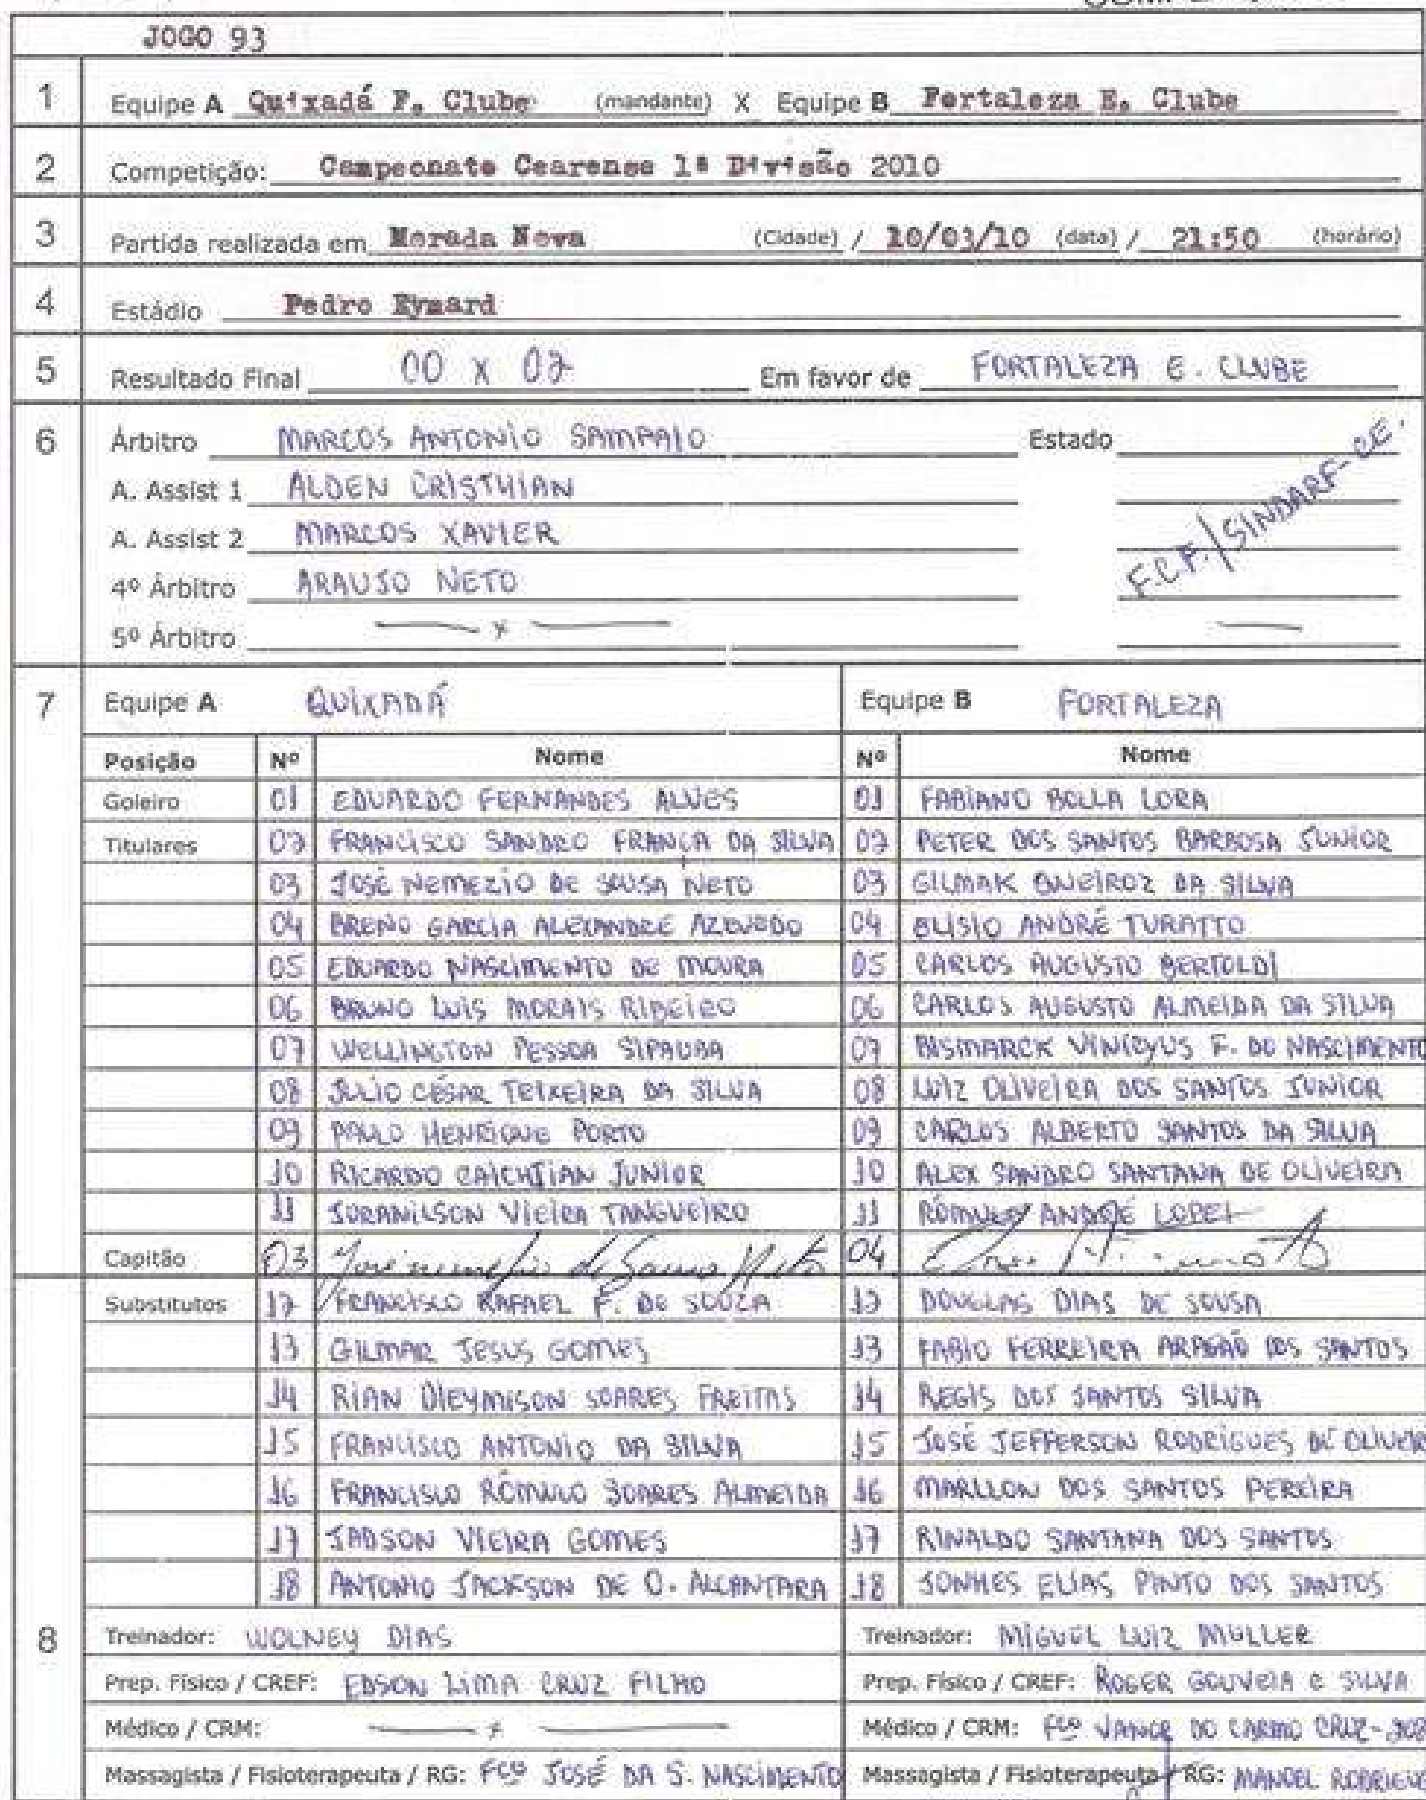 JOGO 93
1 Equipe A Quixadá F. Clube (mandante) X Equipe B Fortaleza E. Clube
2 Competição: Campeonato Cearense 1ª Divisão 2010
3 Partida realizada em Morada Nova (Cidade) / 10/03/10 (data) / 21:50 (horário)
4 Estádio Pedro Eymard
5 Resultado Final 00 x 02 Em favor de FORTALEZA E. CLUBE
6 Árbitro MARCOS ANTONIO SAMPAIO Estado
A. Assist 1 ALDEN CRISTHIAN
A. Assist 2 MARCOS XAVIER
F.C.F./SINDARF-CE.
4º Árbitro ARAUJO NETO
5º Árbitro — x — —
7 Equipe A QUIXADÁ Equipe B FORTALEZA
Posição Nº Nome Nº Nome
Goleiro 01 EDUARDO FERNANDES ALVES 01 FABIANO BOLLA LORA
Titulares 02 FRANCISCO SANDRO FRANÇA DA SILVA 02 PETER DOS SANTOS BARBOSA JUNIOR
03 JOSÉ NEMEZIO DE SOUSA NETO 03 GILMAK QUEIROZ DA SILVA
04 BRENO GARCIA ALEXANDRE AZEVEDO 04 ELISIO ANDRÉ TURATTO
05 EDUARDO NASCIMENTO DE MOURA 05 CARLOS AUGUSTO BERTOLDI
06 BRUNO LUIS MORAIS RIBEIRO 06 CARLOS AUGUSTO ALMEIDA DA SILVA
07 WELLINGTON PESSOA SIPAUBA 07 BISMARCK VINICYUS F. DO NASCIMENTO
08 JULIO CÉSAR TEIXEIRA DA SILVA 08 LUIZ OLIVEIRA DOS SANTOS JUNIOR
09 PAULO HENRIQUE PORTO 09 CARLOS ALBERTO SANTOS DA SILVA
10 RICARDO JUNIOR 10 ALEX SANDRO SANTANA DE OLIVEIRA
11 JORANILSON VIEIRA TANGUEIRO 11 RÔMULO ANDRÉ
Capitão 03 José nemezio de Sousa Neto 04
Substitutos 12 FRANCISCO RAFAEL F. DE SOUZA 12 DOUGLAS DIAS DE SOUSA
13 GILMAR JESUS GOMES 13 FABIO FERREIRA ARAGÃO DOS SANTOS
14 RIAN DIEYMISON SOARES FREITAS 14 REGIS DOS SANTOS SILVA
15 FRANCISCO ANTONIO DA SILVA 15 JOSÉ JEFFERSON RODRIGUES DE OLIVEIR
16 FRANCISCO RÔMULO SOARES ALMEIDA 16 MARLLON DOS SANTOS PEREIRA
17 JADSON VIEIRA GOMES 17 RINALDO SANTANA DOS SANTOS
18 ANTONIO JACKSON DE O. ALCANTARA 18 JONHES ELIAS PINTO DOS SANTOS
8 Treinador: WOLNEY DIAS Treinador: MIGUEL LUIZ MULLER
Prep. Físico / CREF: EDSON LIMA CRUZ FILHO Prep. Físico / CREF: ROGER GOUVEIA E SILVA
Médico / CRM: — x — Médico / CRM: Fco DO CARMO CRUZ-
Massagista / Fisioterapeuta / RG: Fco JOSÉ DA S. NASCIMENTO Massagista / Fisioterapeuta / RG: MANOEL RODRIGUE